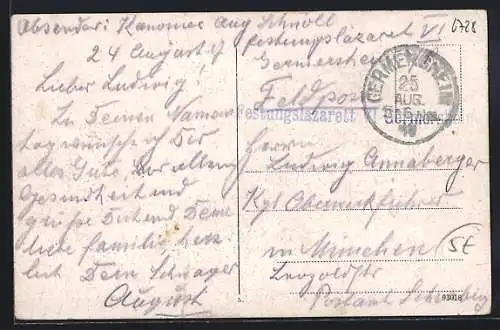 Absender: Kanonier Aug Schnoll
Festungslazarett VI
24 August 17
Germersheim
Feldpost
Festungslazarett VI Germersheim
GERMERSHEIM
25
AUG.
Lieber Ludwig!
Zu Deinem Namens
tag wünsche ich Dir
alles Gute, Vor allem
Gesundheit und
grüße Dich und Deine
liebe Familie herz
lich Dein Schwager
August
Herrn
Ludwig Annaberger
Kgl
in München
Leopoldstr
Postamt Schwabing
93018